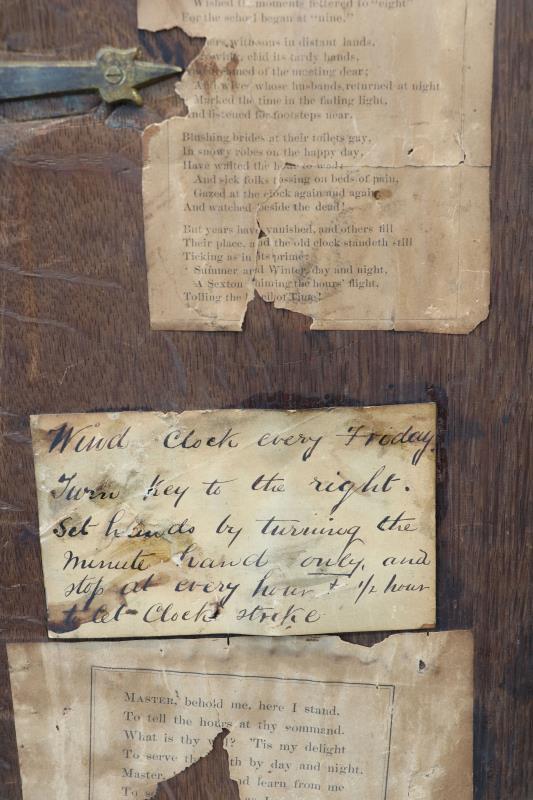 Wished the moments fettered to "eight"
For the school began at "nine."
with sons in distant lands,
chid its tardy hands,
of the meeting dear;
And wives whose husbands returned at night
Marked the time in the fading light,
And listened for footsteps near.
Blushing brides at their toilets gay,
In snowy robes on the happy day,
Have waited the hour to wed;
And sick folks tossing on beds of pain,
Gazed at the clock again and again
And watched beside the dead!
But years have vanished, and others fill
Their place, and the old clock standeth still
Ticking as in its prime;
Summer and Winter, day and night,
A Sexton chiming the hours' flight,
Tolling the knell of Time!
Wind Clock every Friday.
Turn Key to the right.
Set hands by turning the
minute hand only, and
stop at every hour & 1/2 hour
to let Clock strike
MASTER, behold me, here I stand,
To tell the hours at thy command.
What is thy will? 'Tis my delight
To serve thee both by day and night.
Master, and learn from me
To